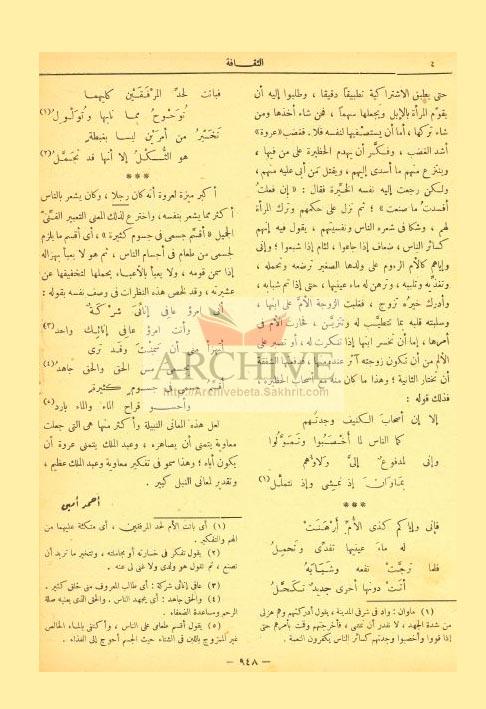 ٤
الثقافة
حتى يطبق الاشتراكية تطبيقاً دقيقا ، وطلبوا إليه أن
يقوّم المرأة بالإبل ويجعلها سهما ، فمن شاء أخذها ومن
شاء تركها ، أما أن يستصفيها لنفسه فلا . فغضب «عروة»
أشد الغضب ، وفكر أن يهدم الحظيرة على من فيها ،
وينتزع منهم ما أسدى إليهم ، ويقتل من أبى عليه منهم ،
ولكن رجعت إليه نفسه الخيّرة فقال : « إن فعلتُ
أفسدتُ ما صنعت » ؛ ثم نزل على حكمهم وترك المرأة
لهم ، وشكا فى شعره الناس ونفسيتهم ، يقول فيه إنهم
كسائر الناس ، ضعاف إذا جاعوا ، لئام إذا شبعوا ؛ وإنى
وإياهم كالأم الرءوم على ولدها الصغير ترضعه وتحمله ،
وتغذيه وتلبيه ، وترهن له ماء عينيها ، حتى إذا تم شبابه ،
وأدرك خيرُه تزوج ، فغلبت الزوجة الأمَّ على ابنها ،
وسلبته قلبه بما تتطيّب له وتتزيّن ، فحارت الأم فى
أمرها، إما أن تخسر ابنها إذا تنكرت له ، أو تصبر على
الألم من أن تكون زوجته آثر عنده منها ، فدفعتها الشفقة
أن تختار الثانية ؛ وهذا ما كان منه مع أصحاب الحظيرة ،
فذلك قوله :
إلا إن أصحاب الكنيف وجدتهم
كما الناس لما أخصبوا وتموّلوا
وإنى لمدفوع إلىّ ولاؤهم
بماوان إذ نمشى وإذ نتململ (١)
***
فإنى وإياكم كذى الأم أرهنت
له ماء عينيها تفدّى وتحمل
فلما ترجّت نفعه وشبابه
أتت دونها أخرى جديد تكحل
(١) ماوان : واد فى شرقى المدينة ، يقول أدركتهم وهم هزلى
من شدة الجهد ، لا نقدر أن نمشى ، فأخرجتهم وقت بأمرهم حتى
إذا قووا وأخصبوا وجدتهم كسائر الناس يكفرون النعمة .
فباتت لحدّ المرفقين كليهما
توحوح مما نابها وتولول (١)
تخيّر من أمرين ليسا بغبطة
هو الثكل إلا أنها قد تجمل (٢)
***
أكبر ميزة لعروة أنه كان رجلا ، وكان يشعر بالناس
أكثر مما يشعر بنفسه ، واخترع لذلك المعنى التعبير الفنّىّ
الجميل « أقسّم جسمى فى جسوم كثيرة » ، أى أقسم ما يلزم
لجسمى من طعام فى أجسام الناس ، ثم هو لا يعبأ بهزاله
إذا سمن قومه ، ولا يعبأ بالأعباء يحملها لتخفيفها عن
عشيرته ، وقد لخص هذه النظرات فى وصف نفسه بقوله :
إنى امرؤ عافى إنائى شركة
وأنت امرؤ عافى إنائك واحد (٣)
أتهزأ منى أن سمنت وقد ترى
بجسمى مس الحق والحق جاهد (٤)
أقسّم جسمى فى جسوم كثيرة
وأحسو قراح الماء والماء بارد (٥)
لعل هذه المعانى النبيلة وأكثر منها هى التى جعلت
معاوية يتمنى أن يصاهره ، وعبد الملك يتمنى عروة أن
يكون أباه ؛ وهذا سمو فى تفكير معاوية وعبد الملك عظيم ،
وتقدير لمعانى النبل كبير .
أحمد أمين
(١) أى باتت الأم لحد المرفقين ، أى متكئة عليهما من
الهم والتفكير .
(٢) يقول تفكر فى خسارته أو مجاملته ، وتتخير ما تريد أن
تصنع ، ثم تقول هو ولدى ولا غنى لى عنه .
(٣) عافى إنائى شركة : أى طالب المعروف منى خلق كثير .
(٤) والحق جاهد : أى يجهد الناس . والحق الذى يعنيه صلة
الرحم ومساعدة الضعفاء .
(٥) يقول أقسم طعامى على الناس ، وأكتفى بالماء الخالص
غير الممزوج باللبن فى الشتاء حيث الجسم أحوج إلى الغذاء .
— ٩٤٨ —
ARCHIVE
http://Archivebeta.Sakhrit.com